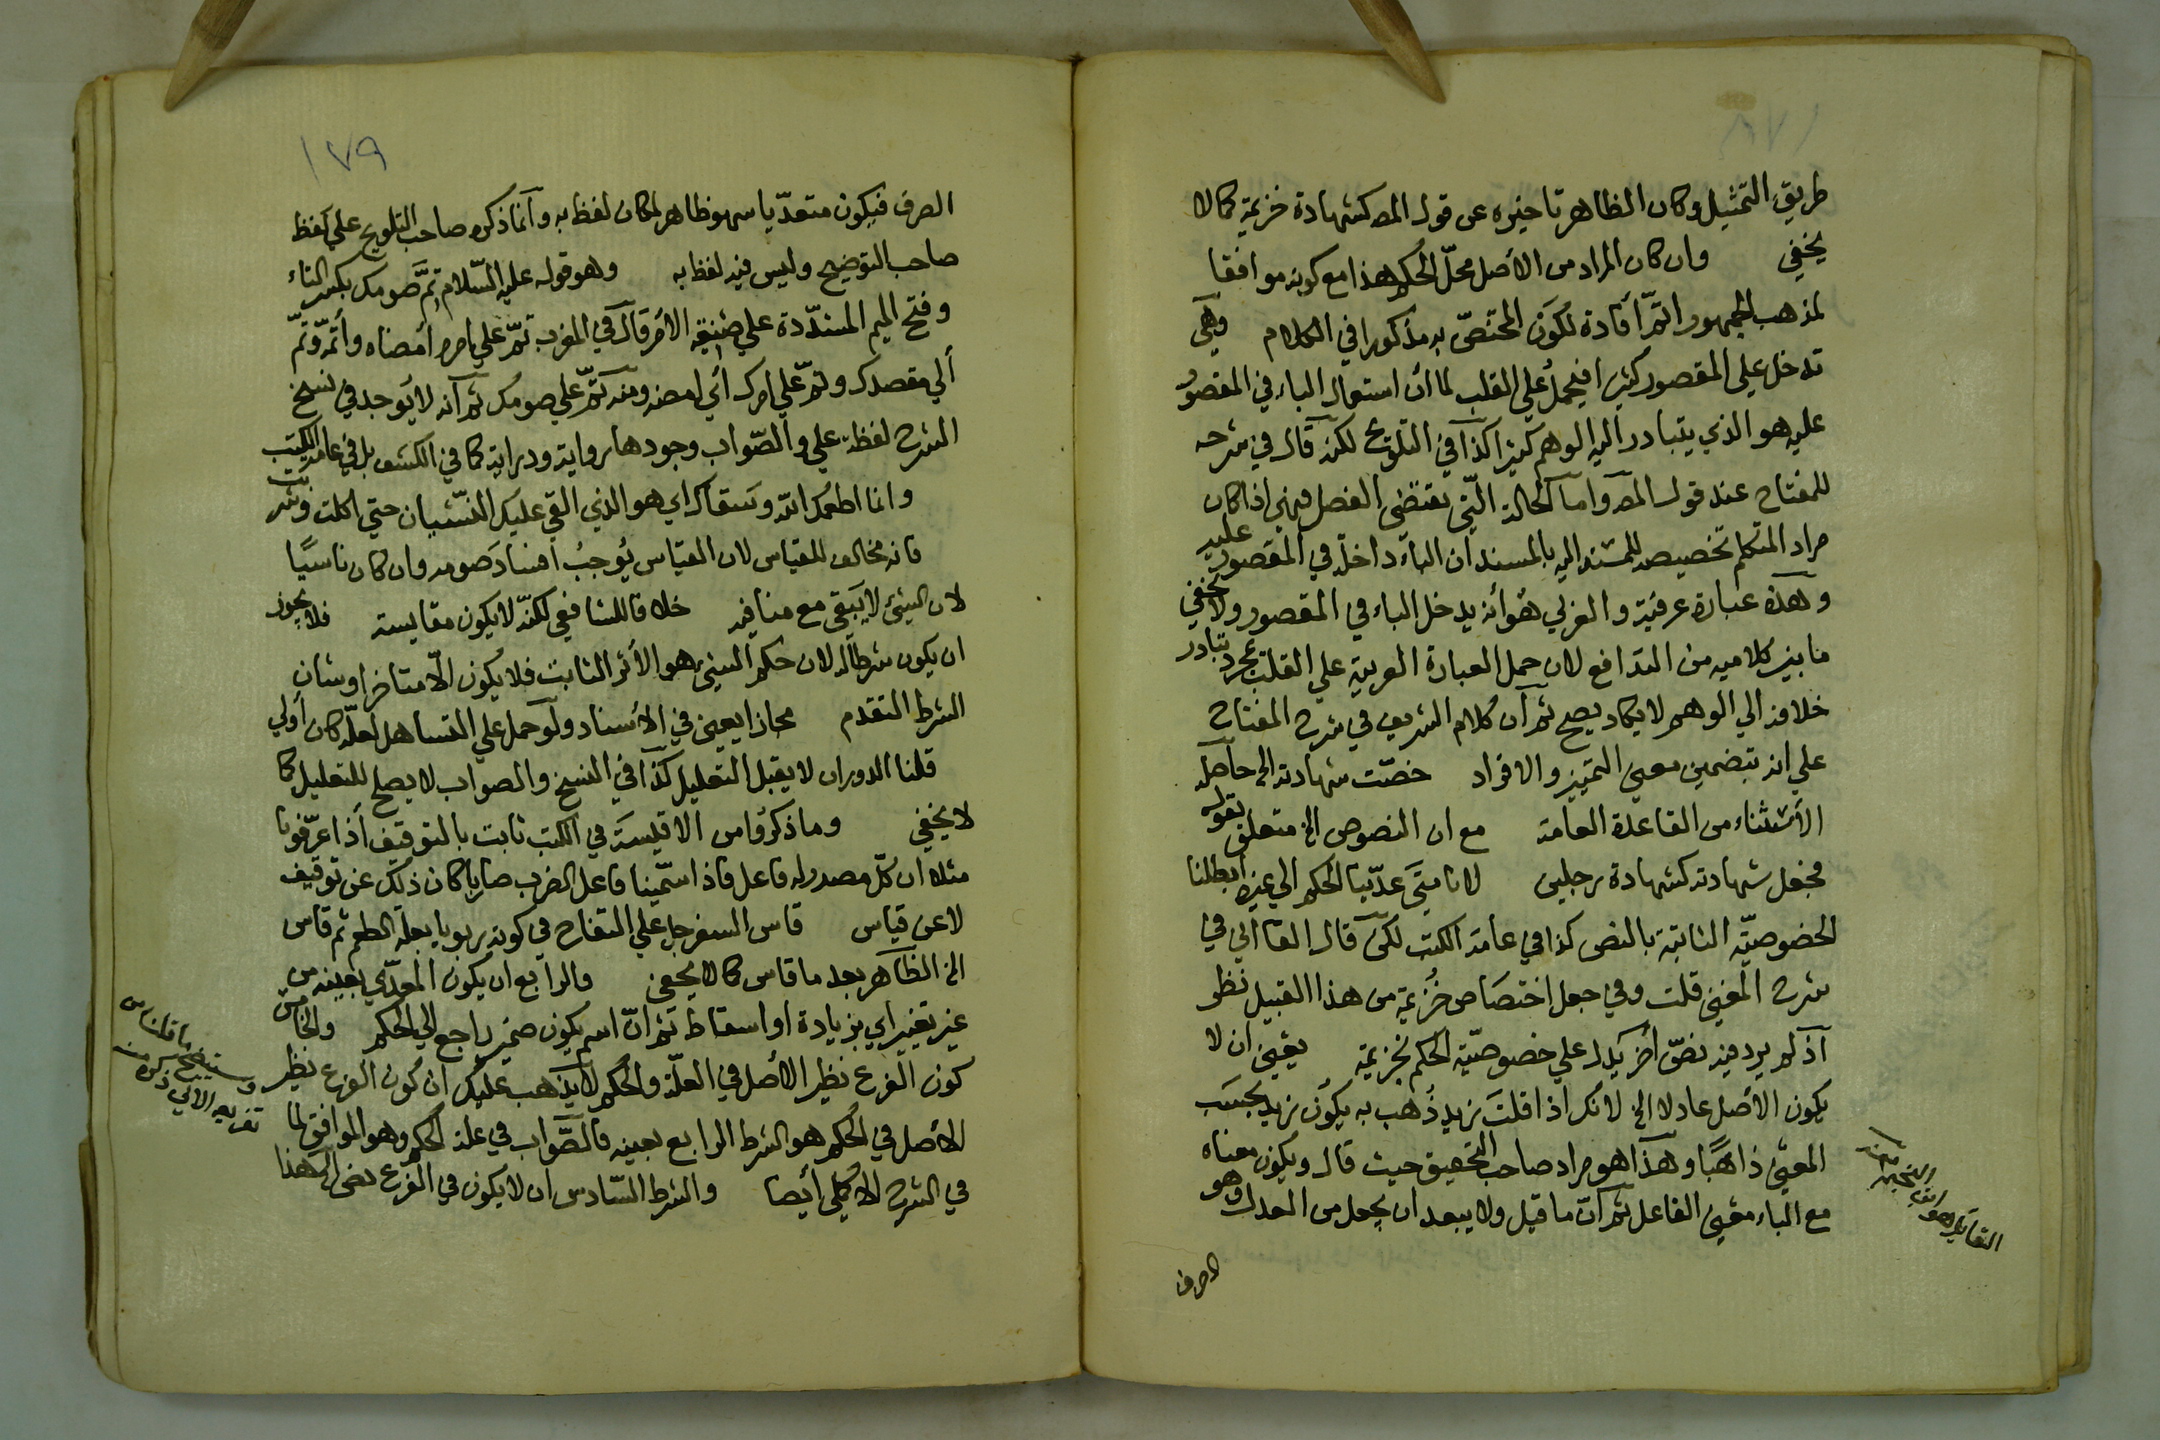 طريق التمثيل وكان الظاهر تاخيره عن قوله المص كشهادة خزيمة كما لا
يخفي وان كان المراد من الأصل محلّ الحكم هذا مع كونه موافقا
لمذهب الجمهور اتمّ أفادة لكون المختصّ به مذكورا في الكلام وهي
تدخل علي المقصور كثيرا فيحمل علي القلب لما أن استعمال الباء في المقصور
عليه هو الذي يتبادر اليه الوهم كثيرا كذا في التلويح لكنه قال في شرحه
للمفتاح عند قول المص واما الحالة التي تقتضي الفصل فهي اذا كان
مراد المتكلم تخصيصه للمسند اليه بالمسند ان الباء داخلة في المقصور عليه
وهذه عبارة عرفية والعربي هو أن يدخل الباء في المقصور ولا يخفي
ما بين كلاميه من التدافع لان حمل العبارة العربية علي القلب بمجرد تبادر
خلافه الي الوهم لا يكاد يصح ثم ان كلام الشريف في شرح المفتاح
علي انه بتضمين معني التمييز والافراد خصّت شهادته الخ حاصله
الأستثناء من القاعدة العامة مع ان النصوص الخ متعلق بقوله
فجعل شهادته كشهادة رجلين لانا متي عدّينا الحكم الي غيره أبطلنا
الخصوصيّة الثابتة بالنص كذا في عامة الكتب لكن قال القاآني في
شرح المغني قلت وفي جعل إختصاص خُزيمة من هذا القبيل نظر
اذ لم يرد فيه نصّ أخر يدل علي خصوصيّة الحكم بخزيمة يعني ان لا
يكون الأصل عادلا الخ لانك اذا قلت زيد ذُهب به يكون زيد بحسب
المعني ذاهبًا وهذا هو مراد صاحب التحقيق حيث قال ويكون معناه
مع الباء معني الفاعل ثم انّ ما قيل ولا يبعد ان يجعل من العدل وهو
الصرف
القائل هو ابن النجيم
الصرف فيكون متعدّيا سهو ظاهر لمكان لفظ به وانما ذكره صاحب التلويح علي لفظ
صاحب التوضيح وليس فيه لفظ به وهو قوله عليه السّلام تِمَّ صومك بكسر التاء
وفتح الميم المشدّدة علي صيغة الأمر قال في المغرب تمّ علي امره أمضاه وأتمّه وتمّ
ألي مقصدك وتمّ علي امرك أي امضه ومنه تمّ علي صومك ثم آنه لا يوجد في نسخ
الشرح لفظة علي والصّواب وجودها رواية ودراية كما في الكشف بل في عامة الكتب
وانما اطعمك الله وسقاك اي هو الذي القي عليك النّسيان حتي اكلت وشربت
فانه مخالف للقياس لان القياس يُوجبُ افساد صومه وان كان ناسيًا
لان الشيء لا يَبقي مع منافيه خلافا للشافعي لكنّه لا يكون مقايسة فلا يجوز
ان يكون شرطا له لان حكم الشيء هو الأثر الثابت فلا يكون الّا متاخرا وشان
الشرط التقدم مجازا يعني في الأسناد ولو حمل علي التساهل لعلّه كان أولي
قلنا الدوران لا يقبل التعليل كذا في النسخ والصواب لا يصلح للتعليل كما
لا يخفي وما ذكروا من الاقيسة في الكتب ثابت بالتوقيف أذا عرّفونا
مثلا ان كلّ مصدر له فاعل فاذا سمّينا فاعل الضرب ضاربا كان ذلك عن توقيف
لا عن قياس قاس السفرجل علي التفاح في كونه ربويا بعلة الطعم ثم قاس
الخ الظاهر بعد ما قاس كما لا يخفي والرابع ان يكون المعدّي بعينه من
غير تغيير اي بزيادة او اسقاط ثم انّ اسم يكون ضمير راجع الي الحكم والخامس
كون الفرع نظير الأصل في العلّة والحكم لا يذهب عليك ان كون الفرع نظير
الأصل في الحكم هو الشرط الرابع بعينه فالصّواب في علة الحكم وهو الموافق لما
في الشرح الأكملي أيضا والشرط السّادس ان لا يكون في الفرع نص الخ هذا
وستتضح ما قلناه من
تفريعه الآتي ذكره منه
١٧٩